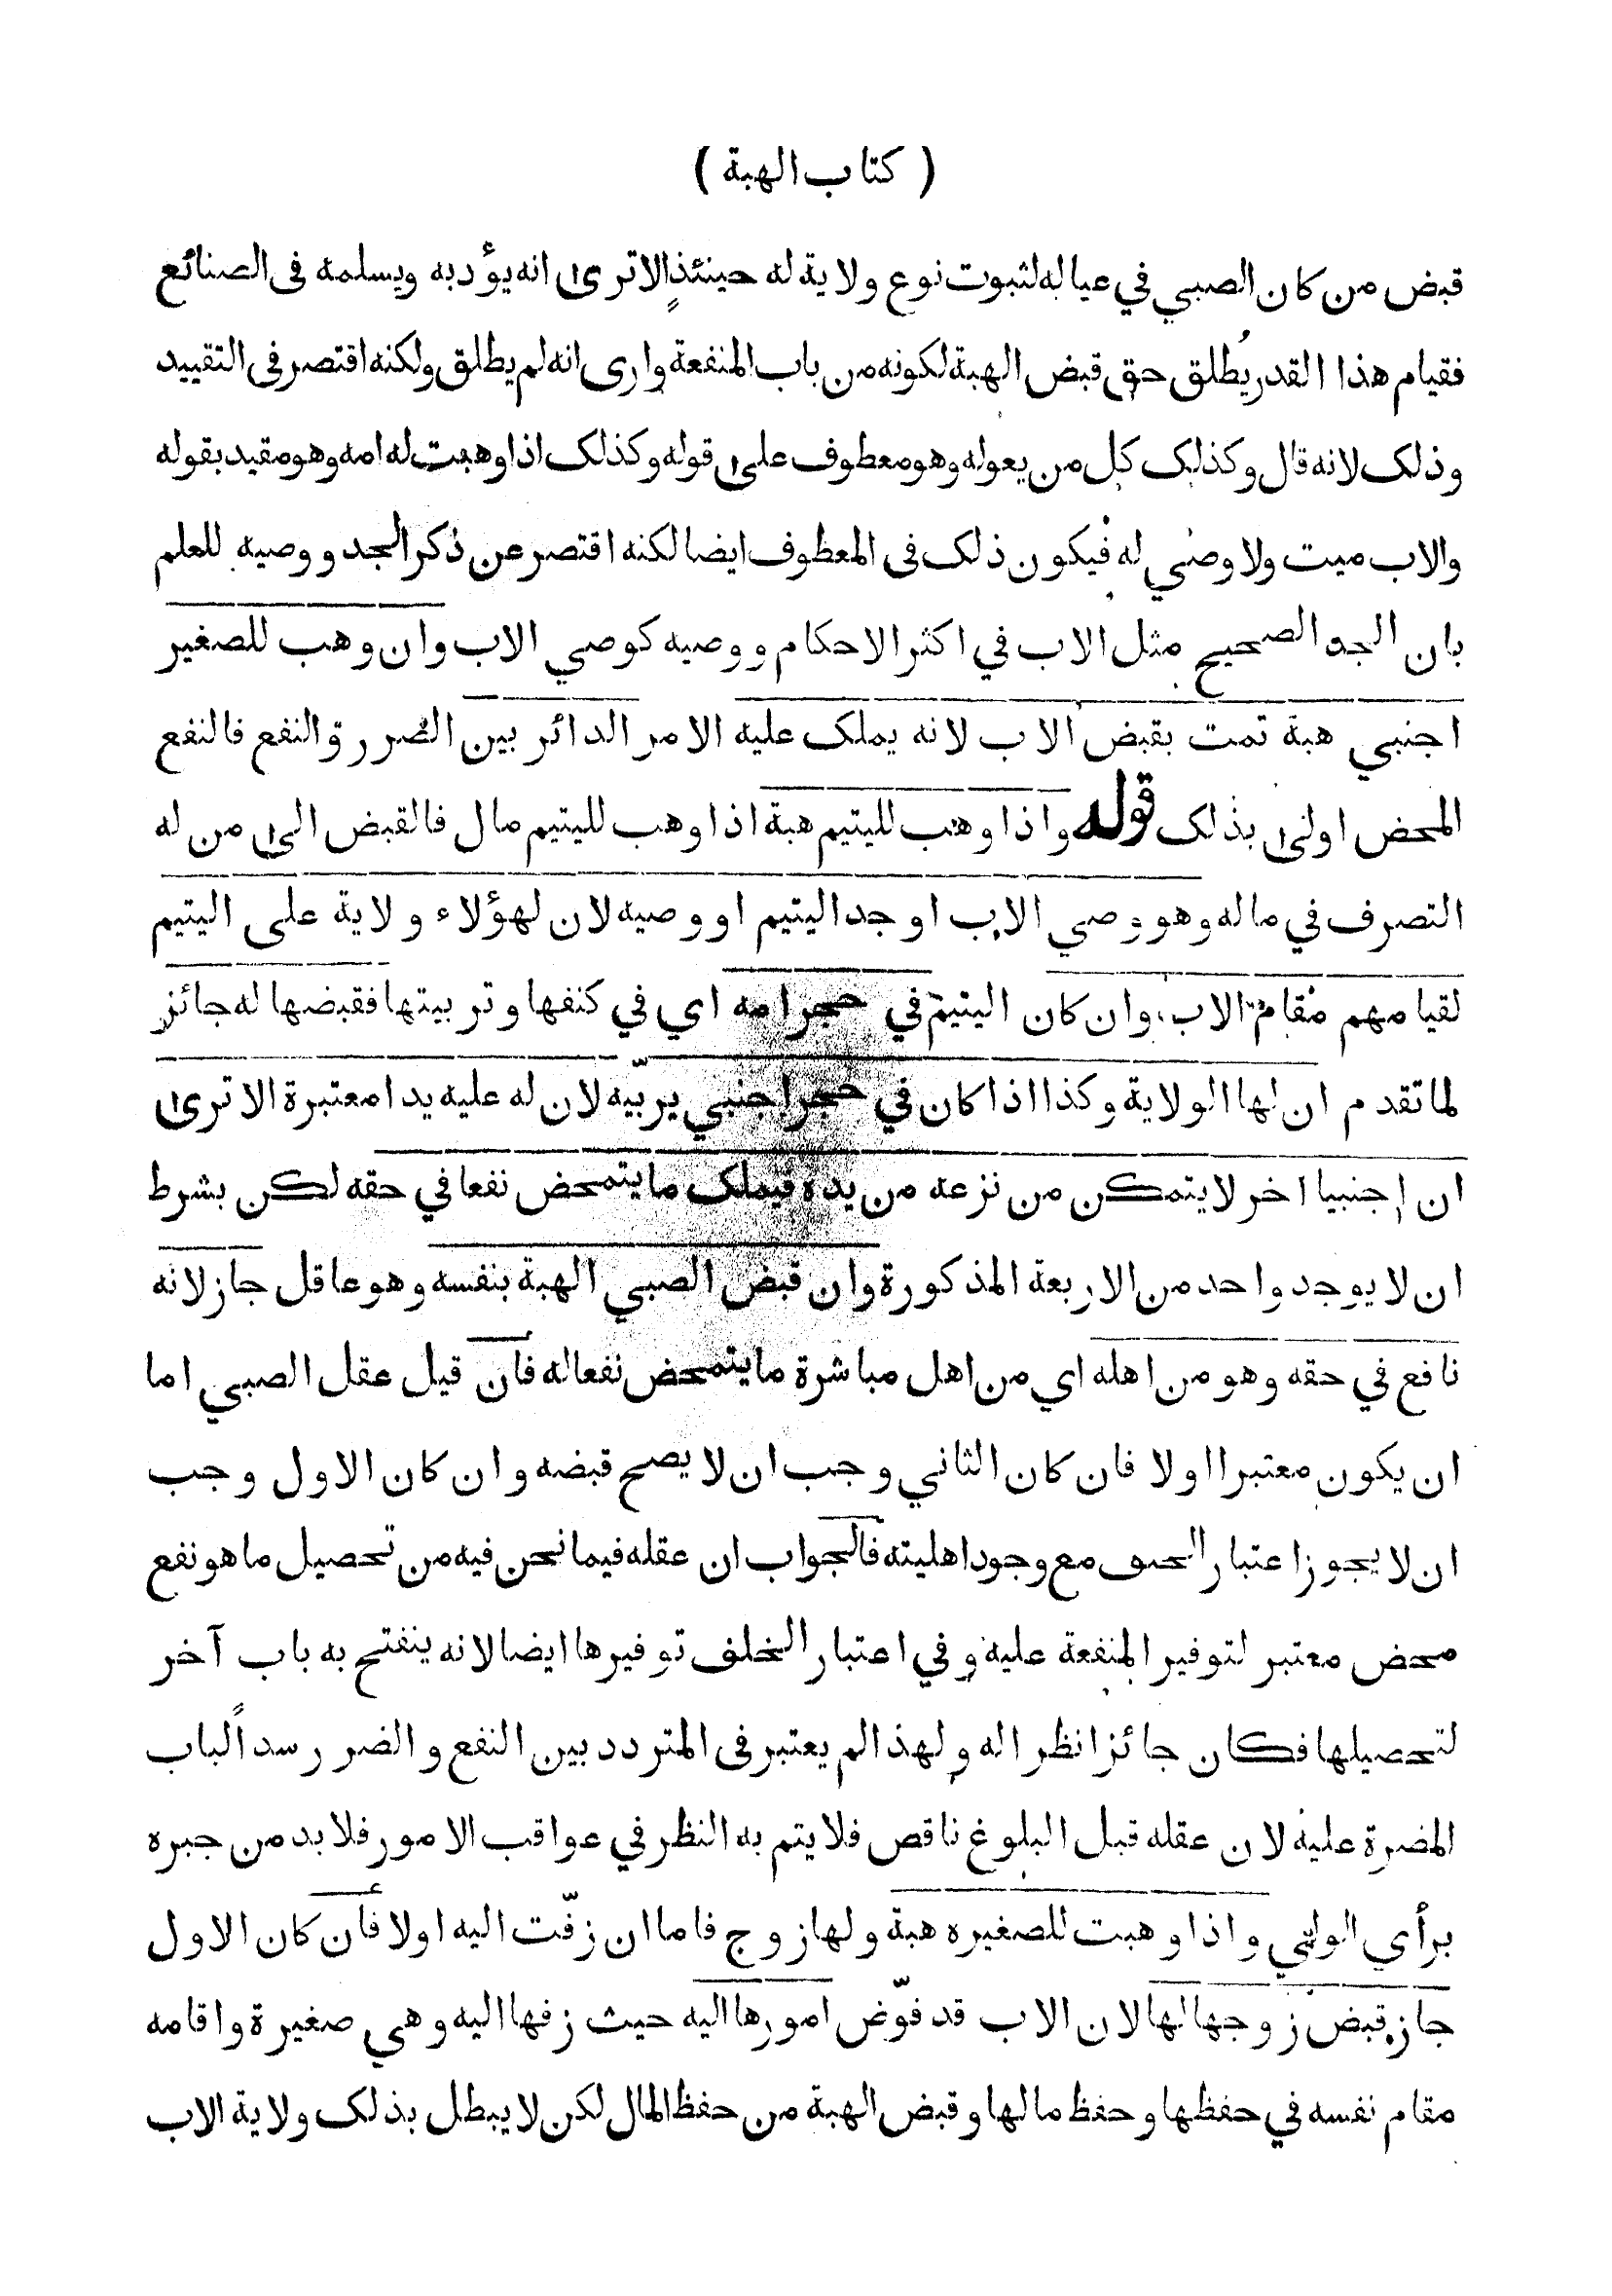 ( كتاب الهبة )
قبض من كان الصبي في عياله لثبوت نوع ولاية له حينئذٍ الا ترى انه يؤدبه ويسلمه فى الصنائع
فقيام هذا القدر يُطلق حق قبض الهبة لكونه من باب المنفعة وارى انه لم يطلق ولكنه اقتصر فى التقييد
وذلك لانه قال وكذلك كل من يعوله وهو معطوف على قوله وكذلك اذا وهبت له امه وهو مقيد بقوله
والاب ميت ولا وصي له فيكون ذلك فى المعطوف ايضا لكنه اقتصر عن ذكر الجد ووصيه للعلم
بان الجد الصحيح مثل الاب في اكثر الاحكام ووصيه كوصي الاب وان وهب للصغير
اجنبي هبة تمت بقبض الاب لانه يملك عليه الامر الدائر بين الضرر والنفع فالنفع
المحض اولى بذلك قوله واذا وهب لليتيم هبة اذا وهب لليتيم مال فالقبض الى من له
التصرف في ماله وهو وصي الاب او جد اليتيم او وصيه لان لهؤلاء ولاية على اليتيم
لقيامهم مقام الاب وان كان اليتيم في حجر امه اي في كنفها وتربيتها فقبضها له جائز
لما تقدم ان لها الولاية وكذا اذا كان في حجر اجنبي يربّيه لان له عليه يدا معتبرة الا ترى
ان اجنبيا اخر لا يتمكن من نزعه من يده فيملك ما يتمحض نفعا في حقه لكن بشرط
ان لا يوجد واحد من الاربعة المذكورة وان قبض الصبي الهبة بنفسه وهو عاقل جاز لانه
نافع في حقه وهو من اهله اي من اهل مباشرة ما يتمحض نفعا له فان قيل عقل الصبي اما
ان يكون معتبرا اولا فان كان الثاني وجب ان لا يصح قبضه وان كان الاول وجب
ان لا يجوز اعتبار الخلف مع وجود اهليته فالجواب ان عقله فيما نحن فيه من تحصيل ما هو نفع
محض معتبر لتوفير المنفعة عليه وفي اعتبار الخلف توفيرها ايضا لانه ينفتح به باب آخر
لتحصيلها فكان جائزا نظرا له ولهذا لم يعتبر فى المتردد بين النفع والضرر سداً لباب
المضرة عليه لان عقله قبل البلوغ ناقص فلا يتم به النظر في عواقب الامور فلا بد من جبره
برأي الولي واذا وهبت للصغيره هبة ولها زوج فاما ان زفّت اليه اولا فأن كان الاول
جاز قبض زوجها لها لان الاب قد فوّض امورها اليه حيث زفها اليه وهي صغيرة واقامه
مقام نفسه في حفظها وحفظ مالها وقبض الهبة من حفظ المال لكن لا يبطل بذلك ولاية الاب